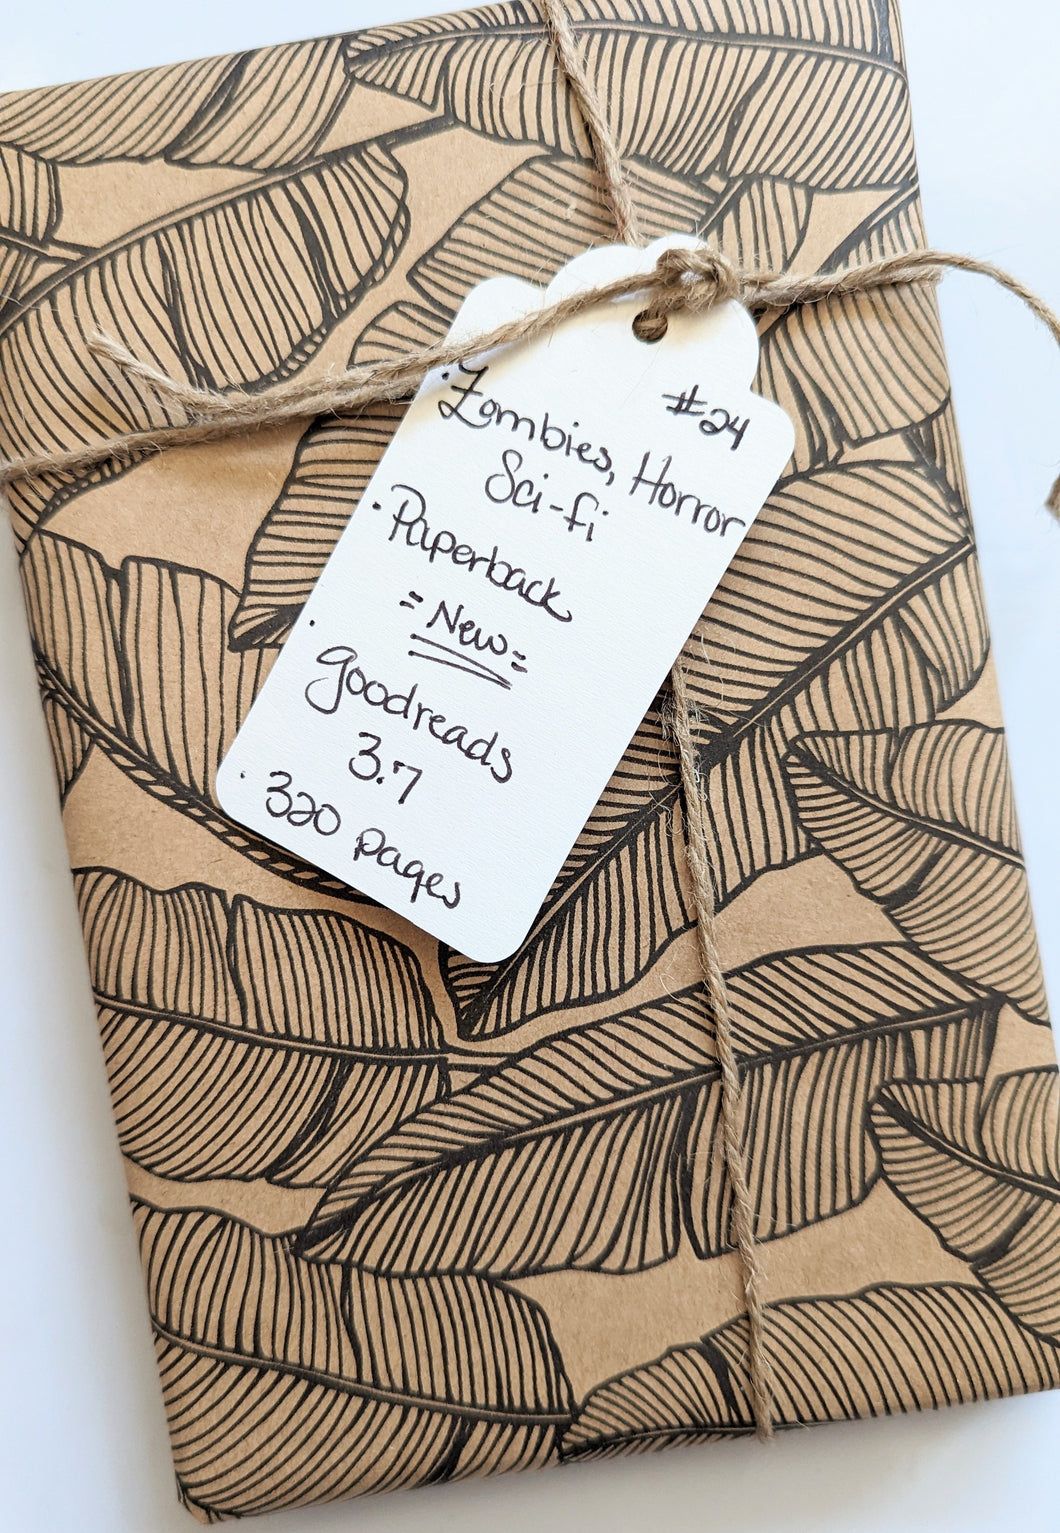 #24
· Zombies, Horror
Sci-fi
· Paperback
= New =
· goodreads
3.7
· 320 pages